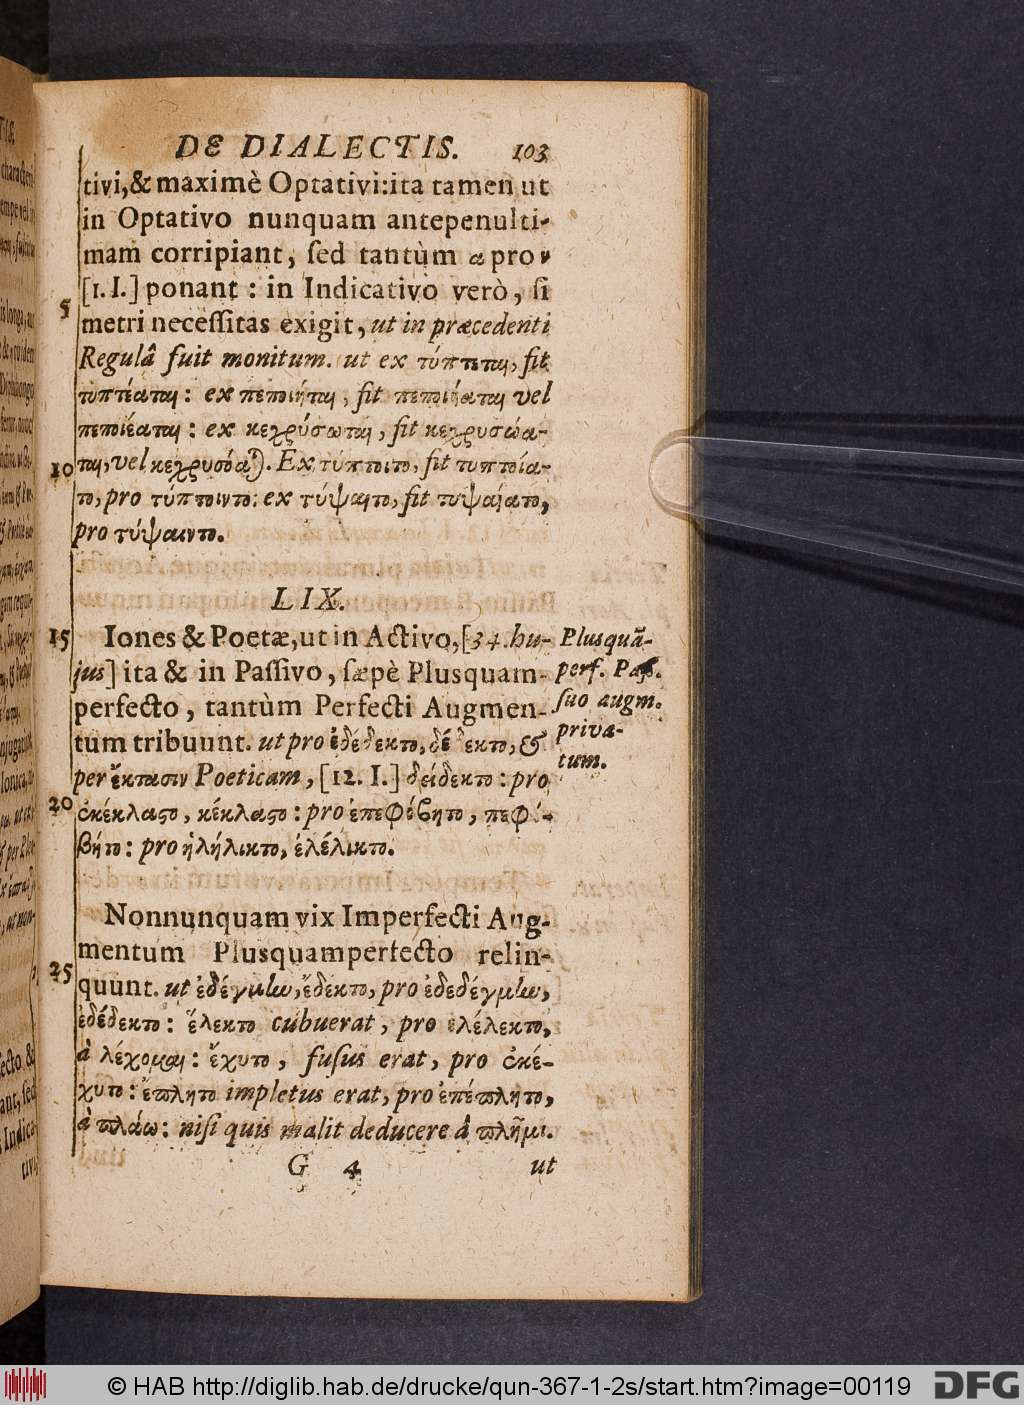 DE DIALECTIS. 103
tivi, & maximè Optativi: ita tamen ut
in Optativo nunquam antepenulti-
mam corripiant, ſed tantùm α pro ν
[1. I.] ponant : in Indicativo verò, ſi
5
metri neceſſitas exigit, ut in præcedenti
Regulâ fuit monitum. ut ex τύπτεται, fit
τυπτέαται: ex πεποιήται, fit πεποιήαται vel
πεποιέαται: ex κεχρύσωται, fit κεχρυσώα-
10 ται, vel κεχρυσόαται). Ex τύπτοιτο, fit τυπτοία-
το, pro τύπτοιντο: ex τύψαιτο, fit τυψαίατο,
pro τύψαιντο.
LIX.
15 Iones & Poetæ, ut in Activo, [34. hu-
jus] ita & in Paſſivo, ſæpè Plusquam-
perfecto, tantùm Perfecti Augmen-
tum tribuunt. ut pro ἐδέδεκτο, δέδεκτο, &
per ἔκτασιν Poeticam, [12. I.] δείδεκτο: pro
20 ἐκέκλαστο, κέκλαστο: pro ἐπεφόβητο, πεφό-
βήτο: pro ἠλήλικτο, ἐλέλικτο.
Pluſquã-
perf. Paſſ.
ſuo augm.
priva-
tum.
Nonnunquam vix Imperfecti Aug-
mentum Plusquamperfecto relin-
25 quunt. ut ἐδέγμην, ἔδεκτο, pro ἐδεδέγμην,
ἐδέδεκτο: ἔλεκτο cubuerat, pro ἐλέλεκτο,
à λέχομαι: ἔχυτο, fuſus erat, pro ἐκέ-
χυτο: ἔπλητο impletus erat, pro ἐπέπλητο,
à πλάω: niſi quis malit deducere à πλῆμι.
G 4 ut
© HAB http://diglib.hab.de/drucke/qun-367-1-2s/start.htm?image=00119 DFG